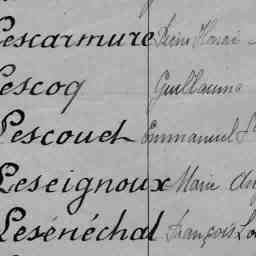 Lescarmure Pierre Henri
Lescoq Guillaume
Lescouet Emmanuel
Leseignoux Marie
Lesénéchal François